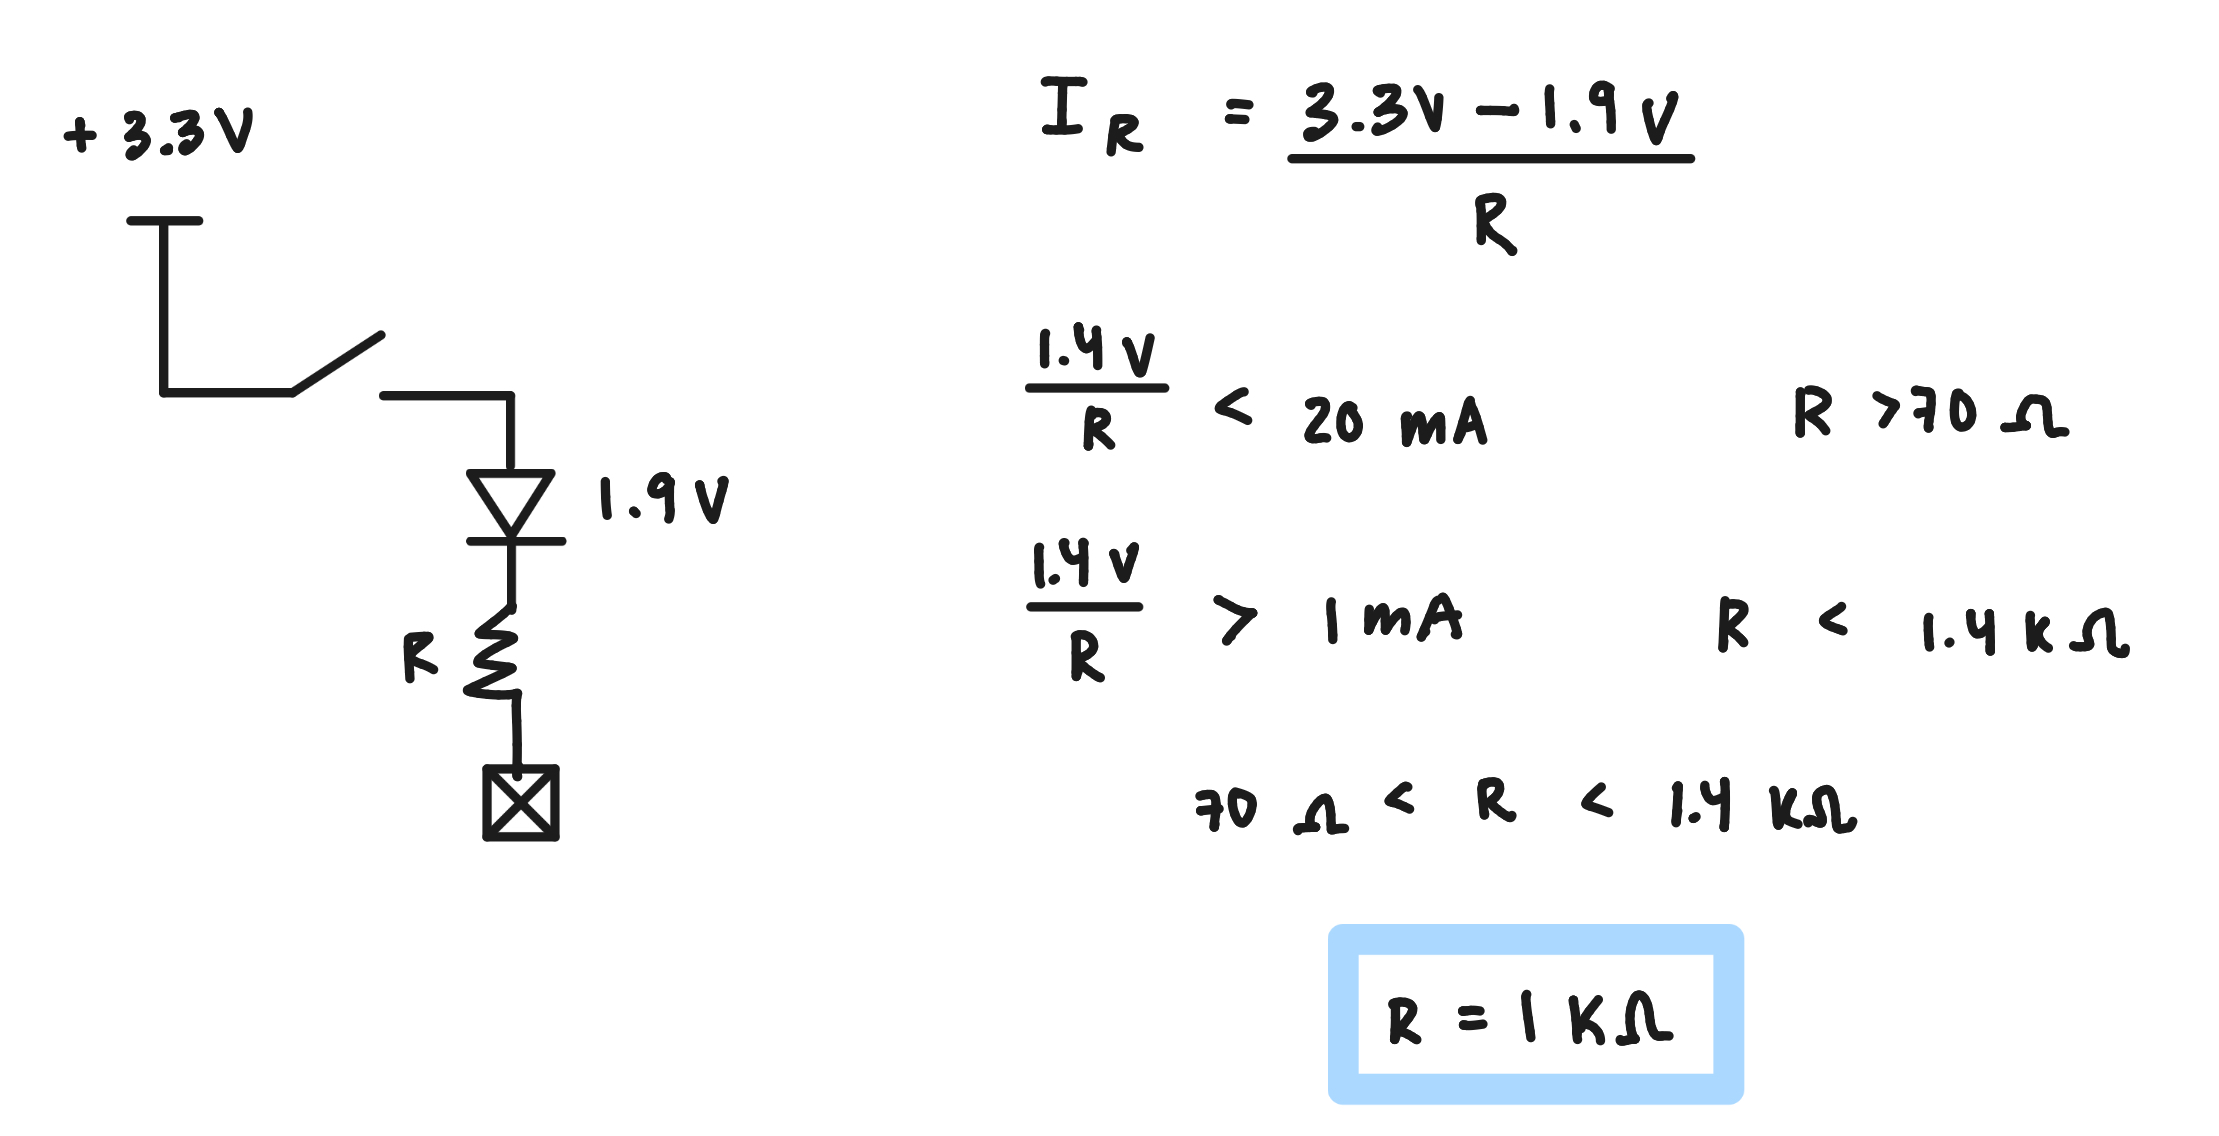 + 3.3V
1.9 V
R
I_R = (3.3V - 1.9V) / R
1.4V / R < 20 mA    R > 70 Ω
1.4V / R > 1 mA    R < 1.4 kΩ
70 Ω < R < 1.4 KΩ
R = 1 KΩ